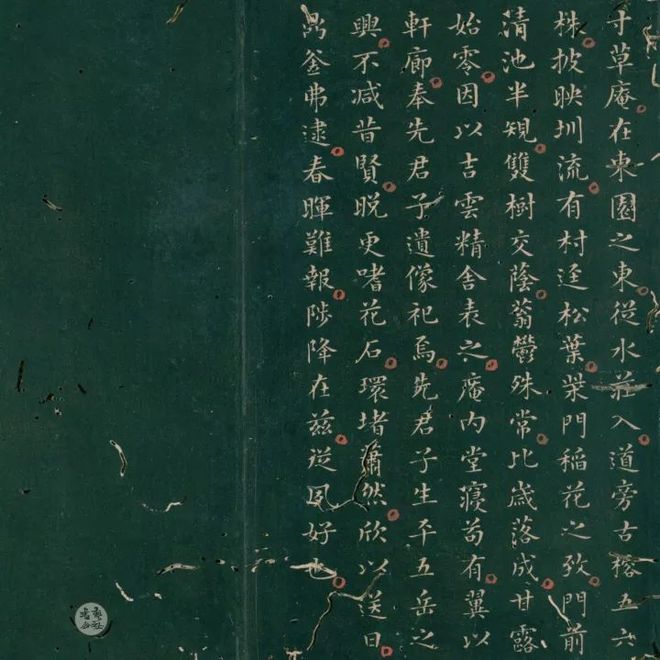 寸草庵在東園之東從水莊入道旁古榕五六
株披映圳流有村逕松葉柴門稻花之致門前
清池半規雙樹交蔭蓊鬱殊常比歲落成甘露
始零因以吉雲精舍表之庵內堂寢苟有翼以
軒廊奉先君子遺像祀焉先君子生平五岳之
興不减昔賢晚更嗜花石環堵蕭然欣以送日
鼎釜弗逮春暉難報陟降在茲從夙好也